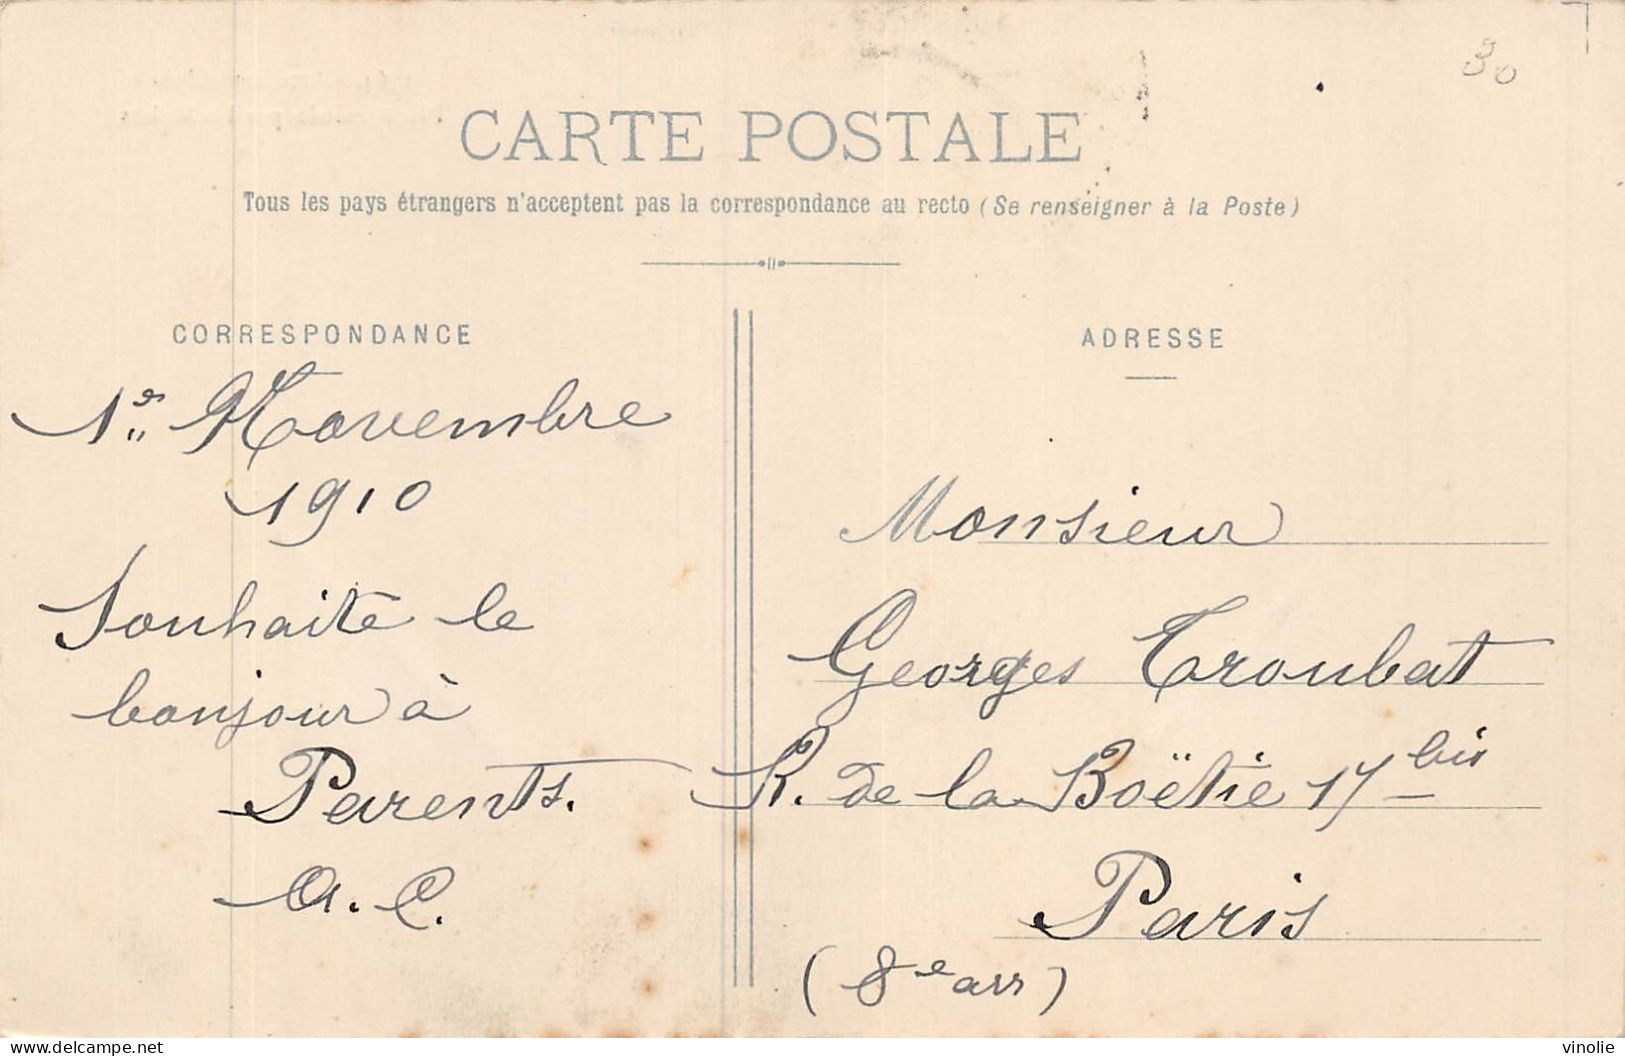 30
CARTE POSTALE
Tous les pays étrangers n'acceptent pas la correspondance au recto (Se renseigner à la Poste)
CORRESPONDANCE
1er Novembre
1910
Souhaite le
bonjour à
Parents.
A. C.
ADRESSE
Monsieur
Georges Troubat
R. de la Boëtie 17 bis
Paris
(8e arr)
delcampe.net
vinolie